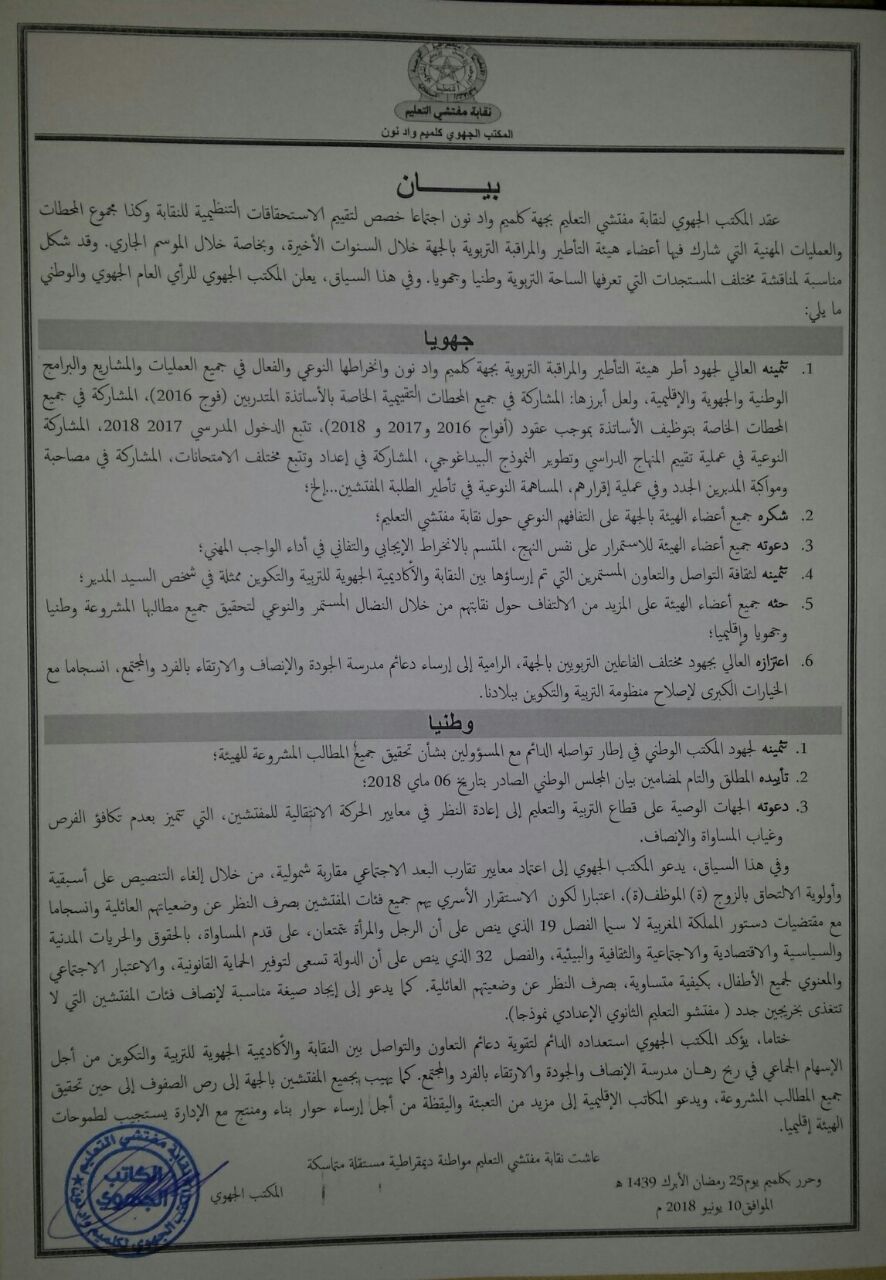 نقابة مفتشي التعليم
المكتب الجهوي كلميم واد نون
بيـــــان
عقد المكتب الجهوي لنقابة مفتشي التعليم بجهة كلميم واد نون اجتماعا خصص لتقييم الاستحقاقات التنظيمية للنقابة وكذا مجموع المحطات
والعمليات المهنية التي شارك فيها أعضاء هيئة التأطير والمراقبة التربوية بالجهة خلال السنوات الأخيرة، وبخاصة خلال الموسم الجاري. وقد شكل
مناسبة لمناقشة مختلف المستجدات التي تعرفها الساحة التربوية وطنيا وجهويا. وفي هذا السياق، يعلن المكتب الجهوي للرأي العام الجهوي والوطني
ما يلي:
جهويا
1. تثمينه العالي لجهود أطر هيئة التأطير والمراقبة التربوية بجهة كلميم واد نون وانخراطها النوعي والفعال في جميع العمليات والمشاريع والبرامج
الوطنية والجهوية والإقليمية، ولعل أبرزها: المشاركة في جميع المحطات التقييمية الخاصة بالأساتذة المتدربين (فوج 2016)، المشاركة في جميع
المحطات الخاصة بتوظيف الأساتذة بموجب عقود (أفواج 2016 و2017 و 2018)، تتبع الدخول المدرسي 2017 2018، المشاركة
النوعية في عملية تقييم المنهاج الدراسي وتطوير النموذج البيداغوجي، المشاركة في إعداد وتتبع مختلف الامتحانات، المشاركة في مصاحبة
ومواكبة المديرين الجدد وفي عملية إقرارهم، المساهمة النوعية في تأطير الطلبة المفتشين...إلخ؛
2. شكره جميع أعضاء الهيئة بالجهة على التفافهم النوعي حول نقابة مفتشي التعليم؛
3. دعوته جميع أعضاء الهيئة للاستمرار على نفس النهج، المتسم بالانخراط الإيجابي والتفاني في أداء الواجب المهني؛
4. تثمينه لثقافة التواصل والتعاون المستمرين التي تم إرساؤها بين النقابة والأكاديمية الجهوية للتربية والتكوين ممثلة في شخص السيد المدير؛
5. حثه جميع أعضاء الهيئة على المزيد من الالتفاف حول نقابتهم من خلال النضال المستمر والنوعي لتحقيق جميع مطالبها المشروعة وطنيا
وجهويا وإقليميا؛
6. اعتزازه العالي بجهود مختلف الفاعلين التربويين بالجهة، الرامية إلى إرساء دعائم مدرسة الجودة والإنصاف والارتقاء بالفرد والمجتمع، انسجاما مع
الخيارات الكبرى لإصلاح منظومة التربية والتكوين ببلادنا.
وطنيا
1. تثمينه لجهود المكتب الوطني في إطار تواصله الدائم مع المسؤولين بشأن تحقيق جميع المطالب المشروعة للهيئة؛
2. تأييده المطلق والتام لمضامين بيان المجلس الوطني الصادر بتاريخ 06 ماي 2018؛
3. دعوته الجهات الوصية على قطاع التربية والتعليم إلى إعادة النظر في معايير الحركة الانتقالية للمفتشين، التي تتميز بعدم تكافؤ الفرص
وغياب المساواة والإنصاف.
وفي هذا السياق، يدعو المكتب الجهوي إلى اعتماد معايير تقارب البعد الاجتماعي مقاربة شمولية، من خلال إلغاء التنصيص على أسبقية
وأولوية الالتحاق بالزوج (ة) الموظف(ة)، اعتبارا لكون الاستقرار الأسري يهم جميع فئات المفتشين بصرف النظر عن وضعياتهم العائلية وانسجاما
مع مقتضيات دستور المملكة المغربية لا سيما الفصل 19 الذي ينص على أن الرجل والمرأة يتمتعان، على قدم المساواة، بالحقوق والحريات المدنية
والسياسية والاقتصادية والاجتماعية والثقافية والبيئية، والفصل 32 الذي ينص على أن الدولة تسعى لتوفير الحماية القانونية، والاعتبار الاجتماعي
والمعنوي لجميع الأطفال، بكيفية متساوية، بصرف النظر عن وضعيتهم العائلية. كما يدعو إلى إيجاد صيغة مناسبة لإنصاف فئات المفتشين التي لا
تتغذى بخريجين جدد ( مفتشو التعليم الثانوي الإعدادي نموذجا).
ختاما، يؤكد المكتب الجهوي استعداده الدائم لتقوية دعائم التعاون والتواصل بين النقابة والأكاديمية الجهوية للتربية والتكوين من أجل
الإسهام الجماعي في ربح رهان مدرسة الإنصاف والجودة والارتقاء بالفرد والمجتمع. كما يهيب بجميع المفتشين بالجهة إلى رص الصفوف إلى حين تحقيق
جميع المطالب المشروعة، ويدعو المكاتب الإقليمية إلى مزيد من التعبئة واليقظة من أجل إرساء حوار بناء ومنتج مع الإدارة يستجيب لطموحات
الهيئة إقليميا.
عاشت نقابة مفتشي التعليم مواطنة ديمقراطية مستقلة متماسكة
وحرر بكلميم يوم25 رمضان الأبرك 1439 ه
المكتب الجهوي
الموافق10 يونيو 2018 م
نقابة مفتشي التعليم
الكاتب
الجهوي
المكتب الجهوي لكلميم واد نون